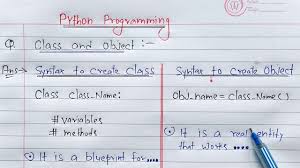 Python Programming
Q. Class and Object :-
Ans→ Syntax to create Class
Class Class-Name:
# variables
# methods
① It is a blueprint for....
Syntax to create Object
Obj-name = Class-Name()
① It is a real entity
that works ....